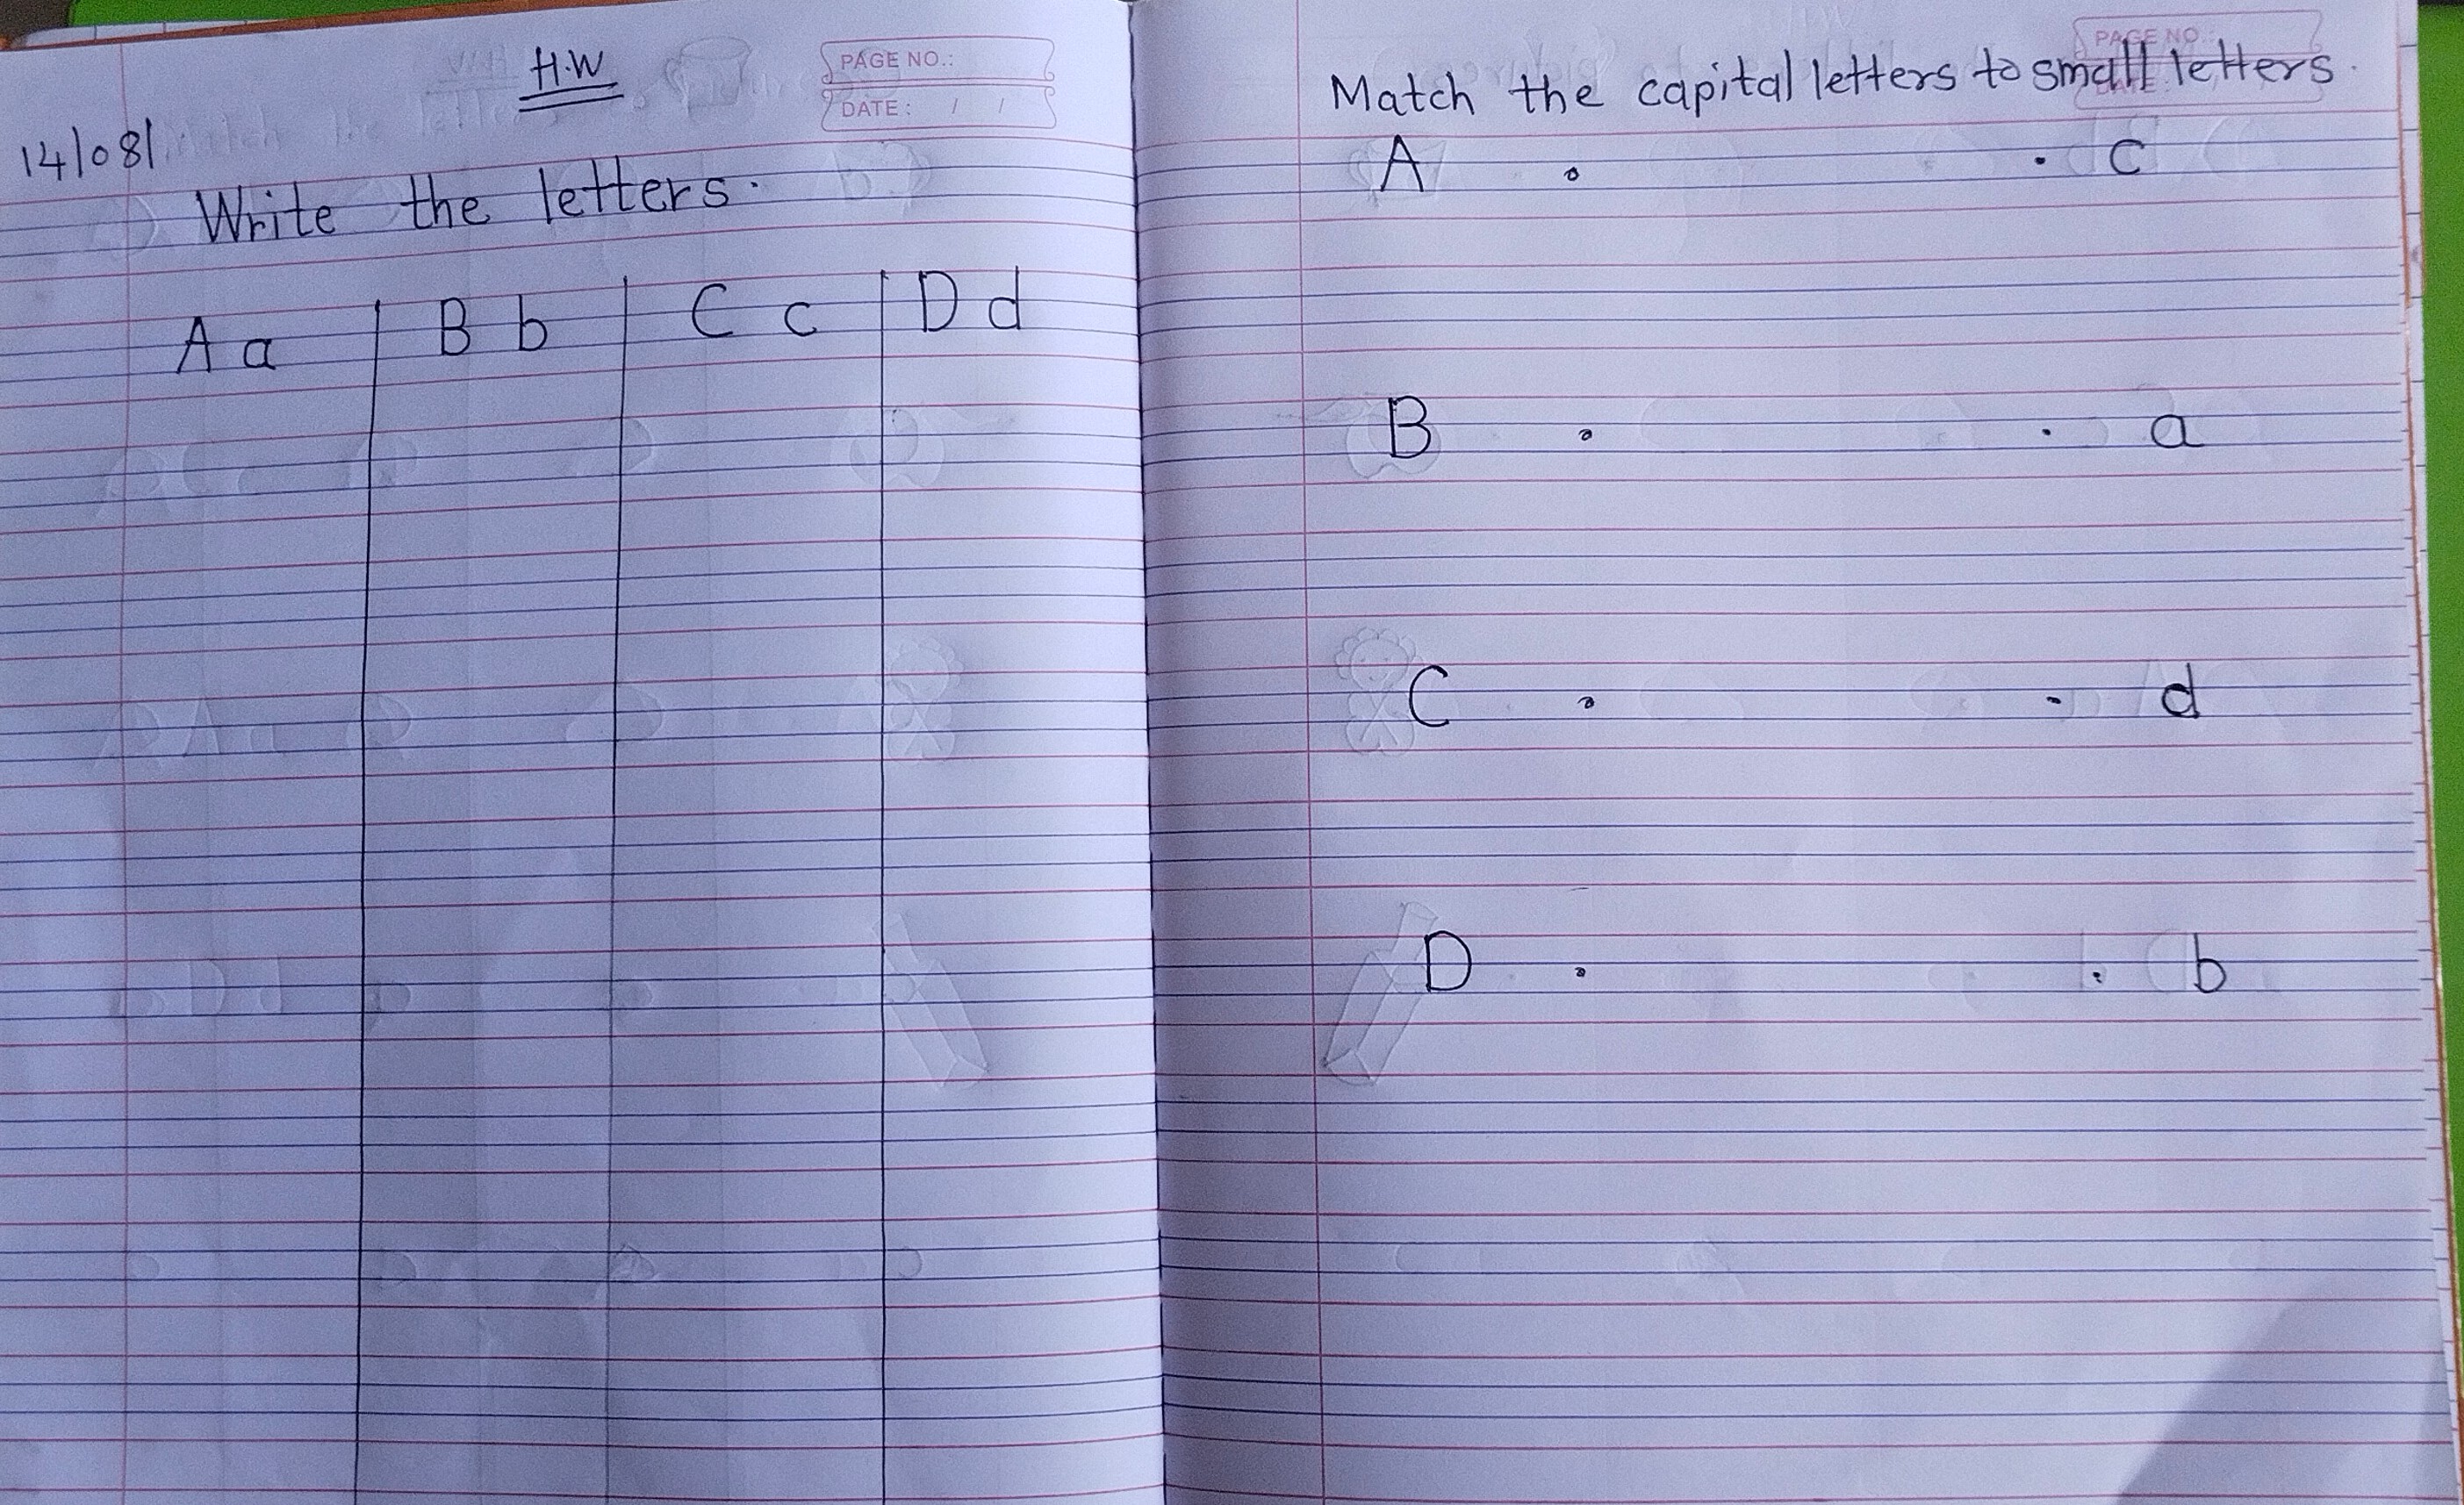 H.W
PAGE NO.:
DATE: / /
14/08/
Write the letters.
A a B b C c D d
PAGE NO.:
Match the capital letters to small letters.
A . . c
B . . a
C . . d
D . . b